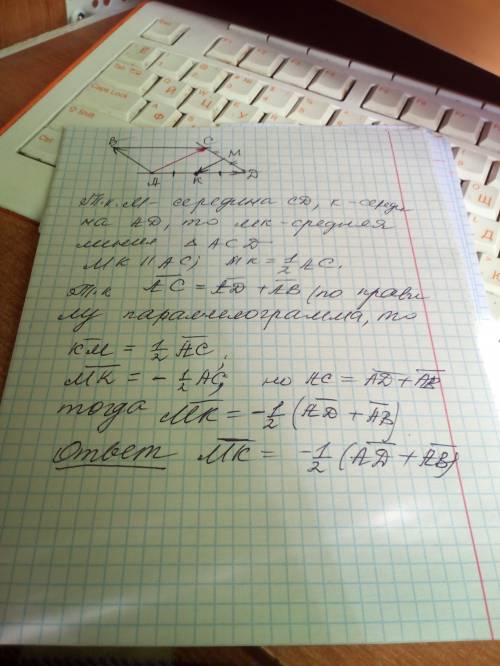 B C M
A K D
Т.к. М- середина CD, К-середи
на AD, то МК-средняя
линия △ ACD
MK || AC; MK = 1/2 AC.
Т.к AC = AD + AB (по прави
лу параллелограмма, то
KM = 1/2 AC,
MK = - 1/2 AC, но AC = AD + AB
тогда MK = -1/2 (AD + AB)
Ответ MK = -1/2 (AD + AB)